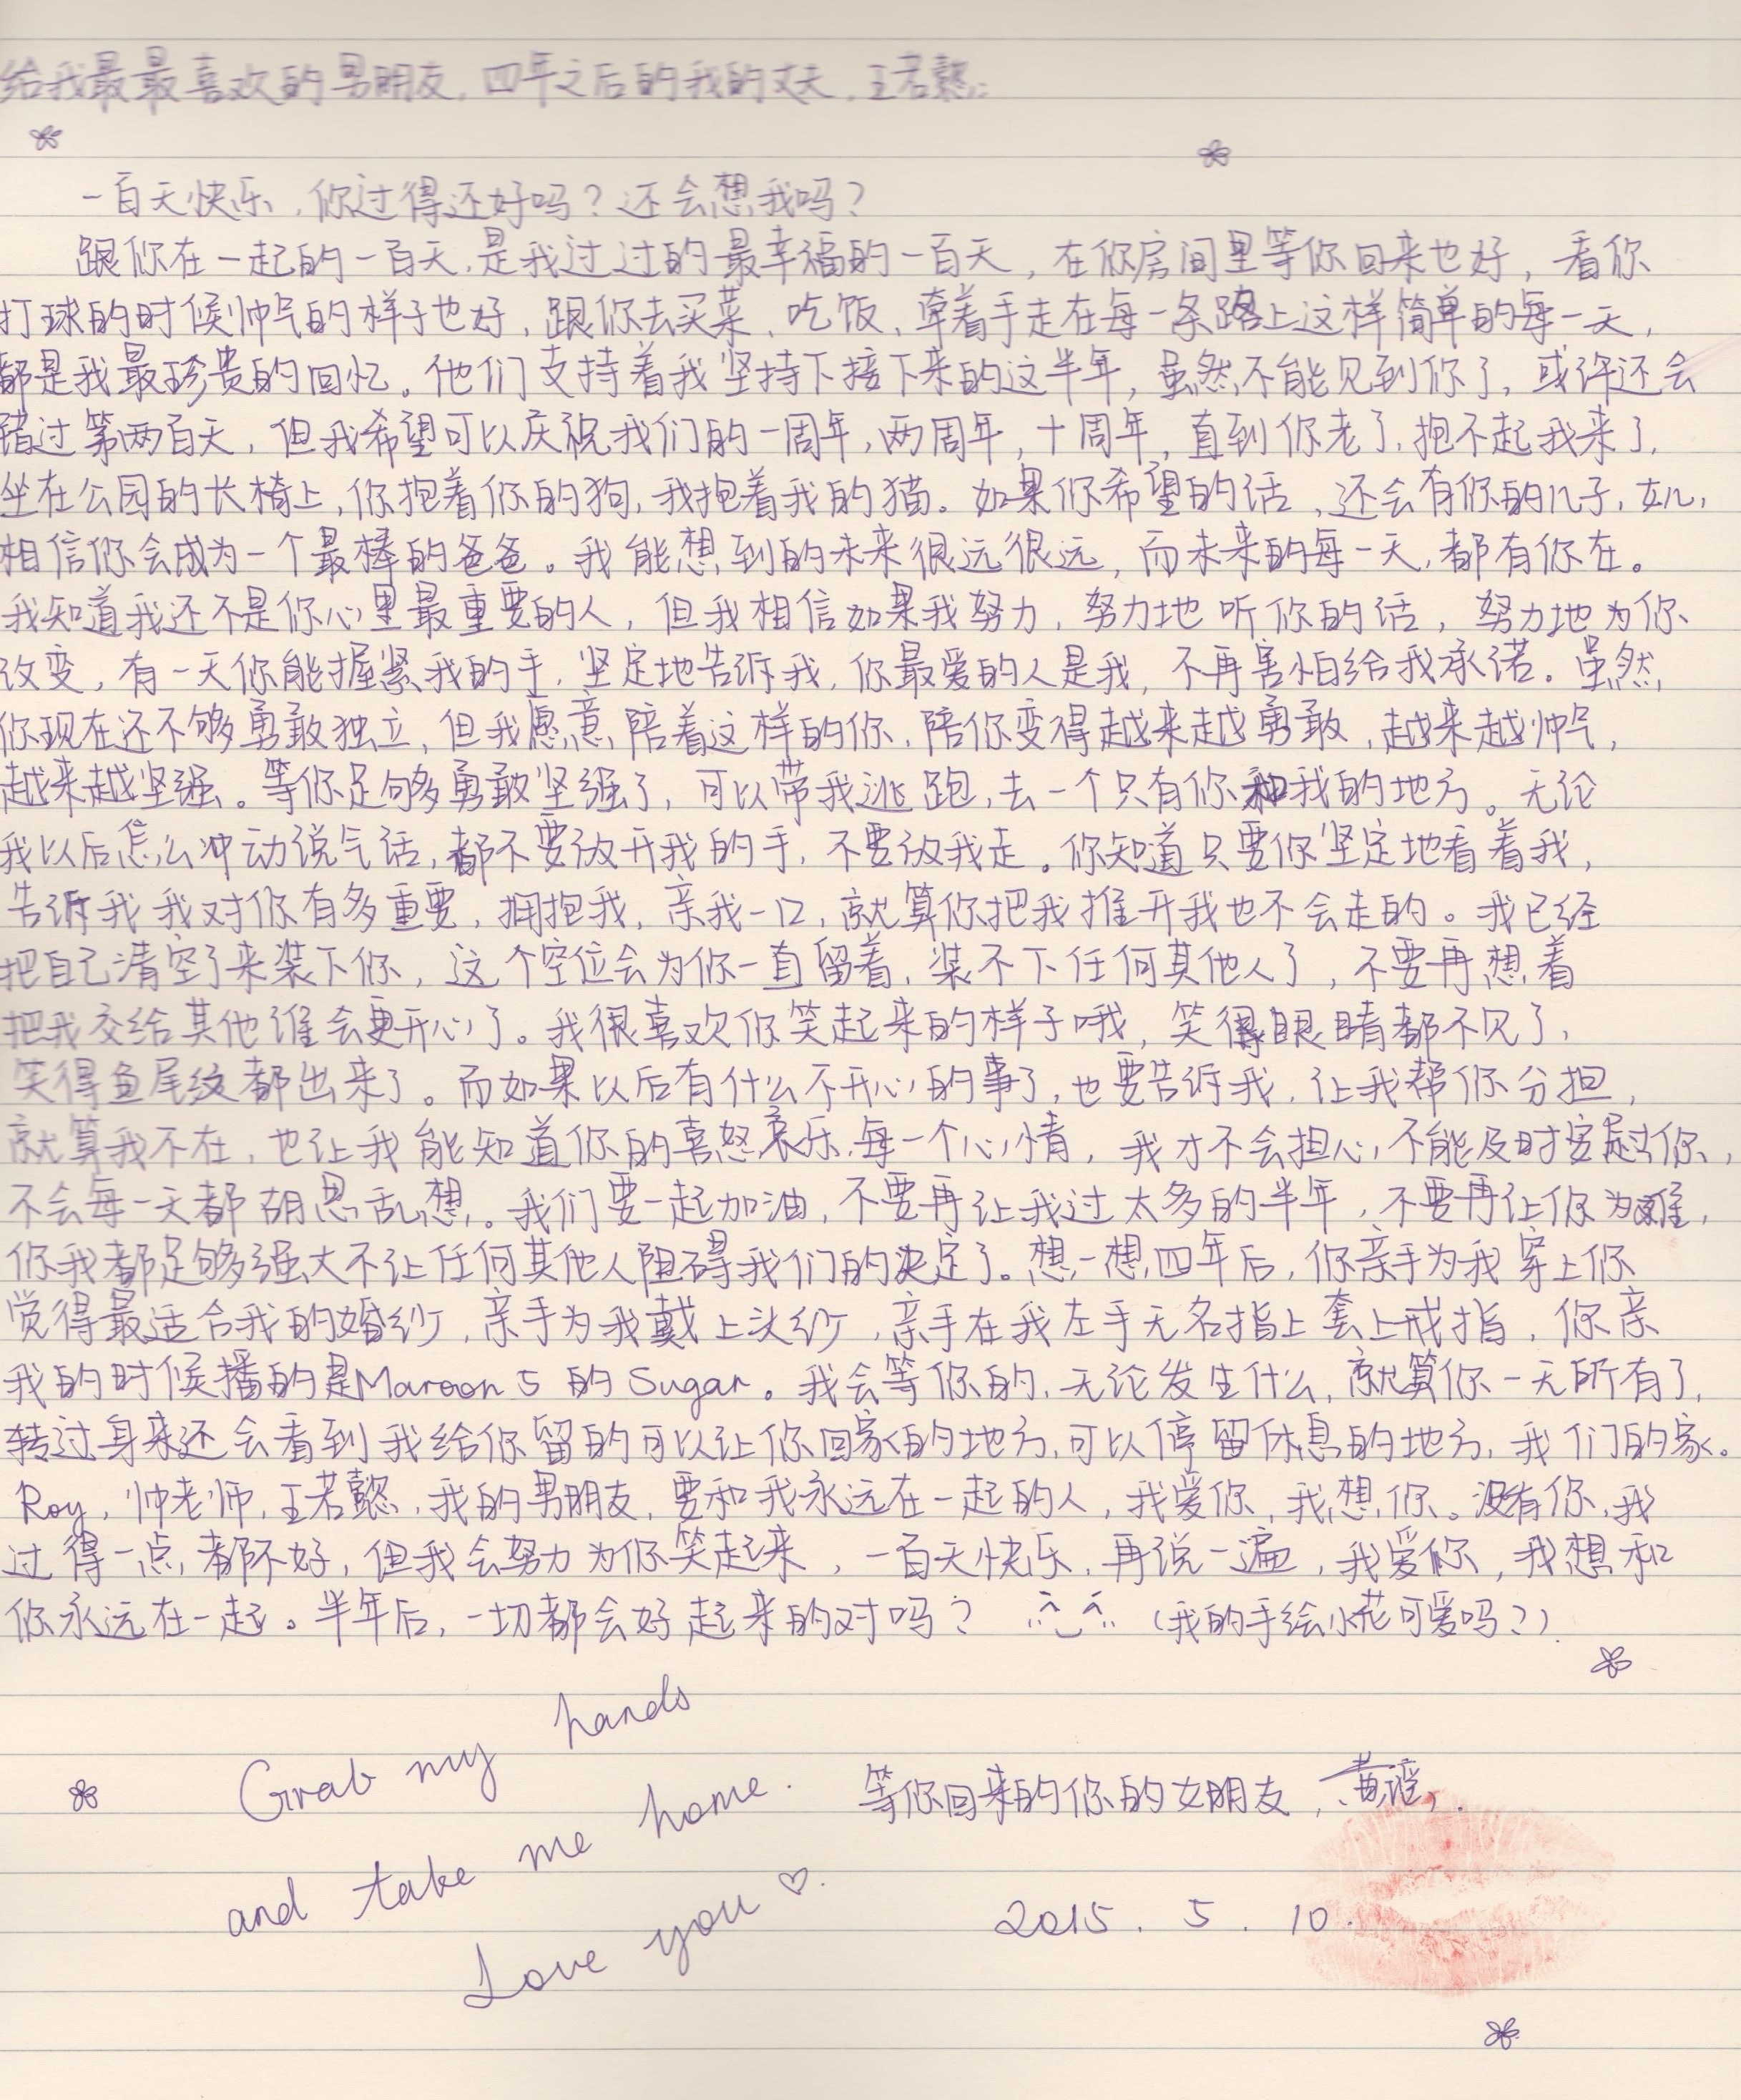 给我最最喜欢的男朋友，四年之后的我的丈夫，王若懿：
一百天快乐，你过得还好吗？还会想我吗？
跟你在一起的一百天，是我过过的最幸福的一百天，在你房间里等你回来也好，看你
打球的时候帅气的样子也好，跟你去买菜、吃饭、牵着手走在每一条路上这样简单的每一天，
都是我最珍贵的回忆。他们支持着我坚持下接下来的这半年，虽然不能见到你了，或许还会
错过第两百天，但我希望可以庆祝我们的一周年，两周年，十周年，直到你老了，抱不起我来了，
坐在公园的长椅上，你抱着你的狗，我抱着我的猫。如果你希望的话，还会有你的儿子，女儿，
相信你会成为一个最棒的爸爸。我能想到的未来很远很远，而未来的每一天，都有你在。
我知道我还不是你心里最重要的人，但我相信如果我努力，努力地听你的话，努力地为你
改变，有一天你能握紧我的手，坚定地告诉我，你最爱的人是我，不再害怕给我承诺。虽然
你现在还不够勇敢独立，但我愿意陪着这样的你，陪你变得越来越勇敢，越来越帅气，
越来越坚强。等你足够勇敢坚强了，可以带我逃跑，去一个只有你和我的地方。无论
我以后怎么冲动说气话，都不要放开我的手，不要放我走。你知道只要你坚定地看着我，
告诉我我对你有多重要，拥抱我，亲我一口，就算你把我推开我也不会走的。我已经
把自己清空了来装下你，这个空位会为你一直留着，装不下任何其他人了，不要再想着
把我交给其他谁会更开心了。我很喜欢你笑起来的样子哦，笑得眼睛都不见了，
笑得鱼尾纹都出来了。而如果以后有什么不开心的事了，也要告诉我，让我帮你分担，
就算我不在，也让我能知道你的喜怒哀乐，每一个心情，我才不会担心，不能及时安慰你，
不会每一天都胡思乱想。我们要一起加油，不要再让我过太多的半年，不要再让你为难，
你我都足够强大不让任何其他人阻碍我们的决定了。想一想四年后，你亲手为我穿上你
觉得最适合我的婚纱，亲手为我戴上头纱，亲手在我左手无名指上套上戒指，你亲
我的时候播的是Maroon 5 的 Sugar。我会等你的，无论发生什么，就算你一无所有了，
转过身来还会看到我给你留的可以让你回家的地方，可以停留休息的地方，我们的家。
Roy，帅老师，王若懿，我的男朋友，要和我永远在一起的人，我爱你，我想你。没有你，我
过得一点都不好，但我会努力为你笑起来，一百天快乐，再说一遍，我爱你，我想和
你永远在一起。半年后，一切都会好起来的对吗？（我的手绘小花可爱吗？）
Grab my hands
and take me home.
Love you ♡.
等你回来的你的女朋友，黄瑶.
2015. 5. 10.